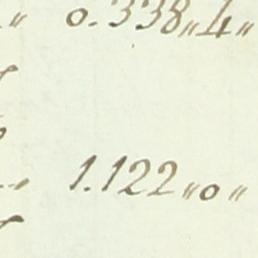 0.338„4„
1.122„0„